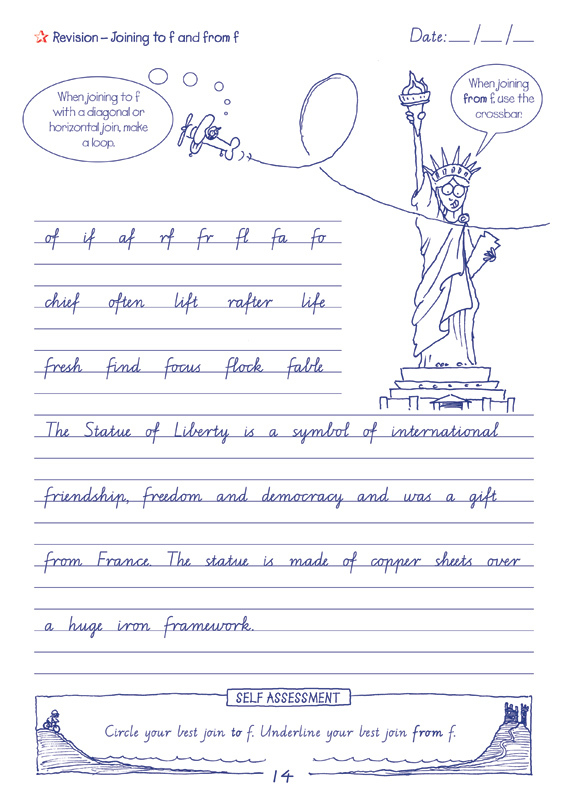 Revision – Joining to f and from f
Date: __/__/__
When joining to f
with a diagonal or
horizontal join, make
a loop.
When joining
from f, use the
crossbar.
of if af rf fr fl fa fo
chief often lift rafter life
fresh find focus flock fable
The Statue of Liberty is a symbol of international
friendship, freedom and democracy and was a gift
from France. The statue is made of copper sheets over
a huge iron framework.
SELF ASSESSMENT
Circle your best join to f. Underline your best join from f.
14